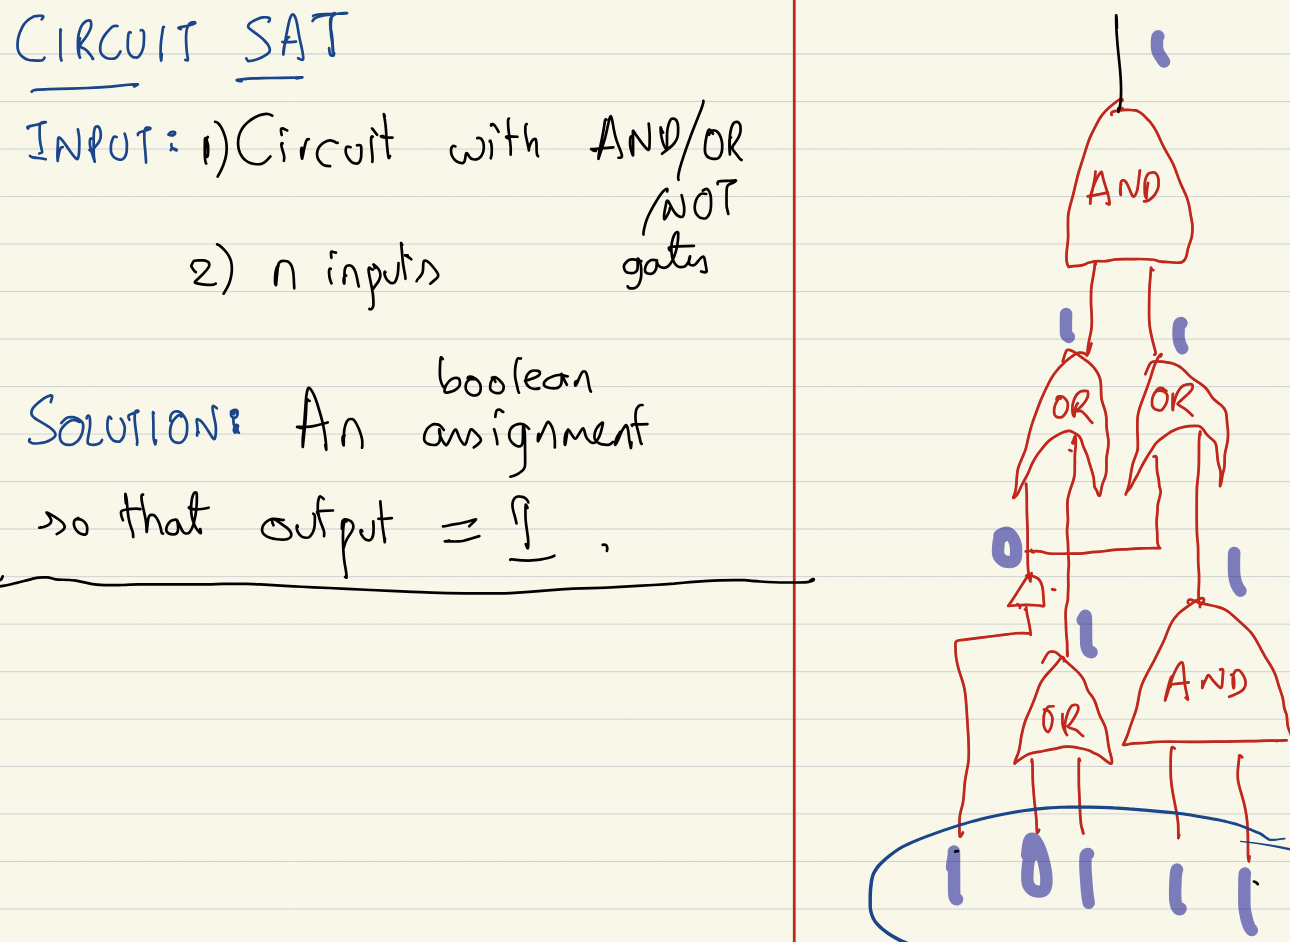 CIRCUIT SAT
INPUT: 1) Circuit with AND/OR
/NOT
gates
2) n inputs
boolean
SOLUTION: An assignment
so that output = 1.
1
AND
1 1
OR OR
0 1
1
OR AND
1 0 1 1 1